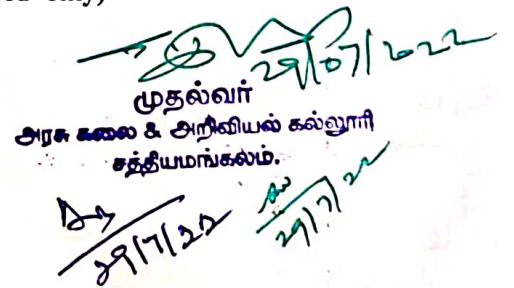 only,
29/07/2022
முதல்வர்
அரசு கலை & அறிவியல் கல்லூரி
சத்தியமங்கலம்.
29/7/22
29/7/22